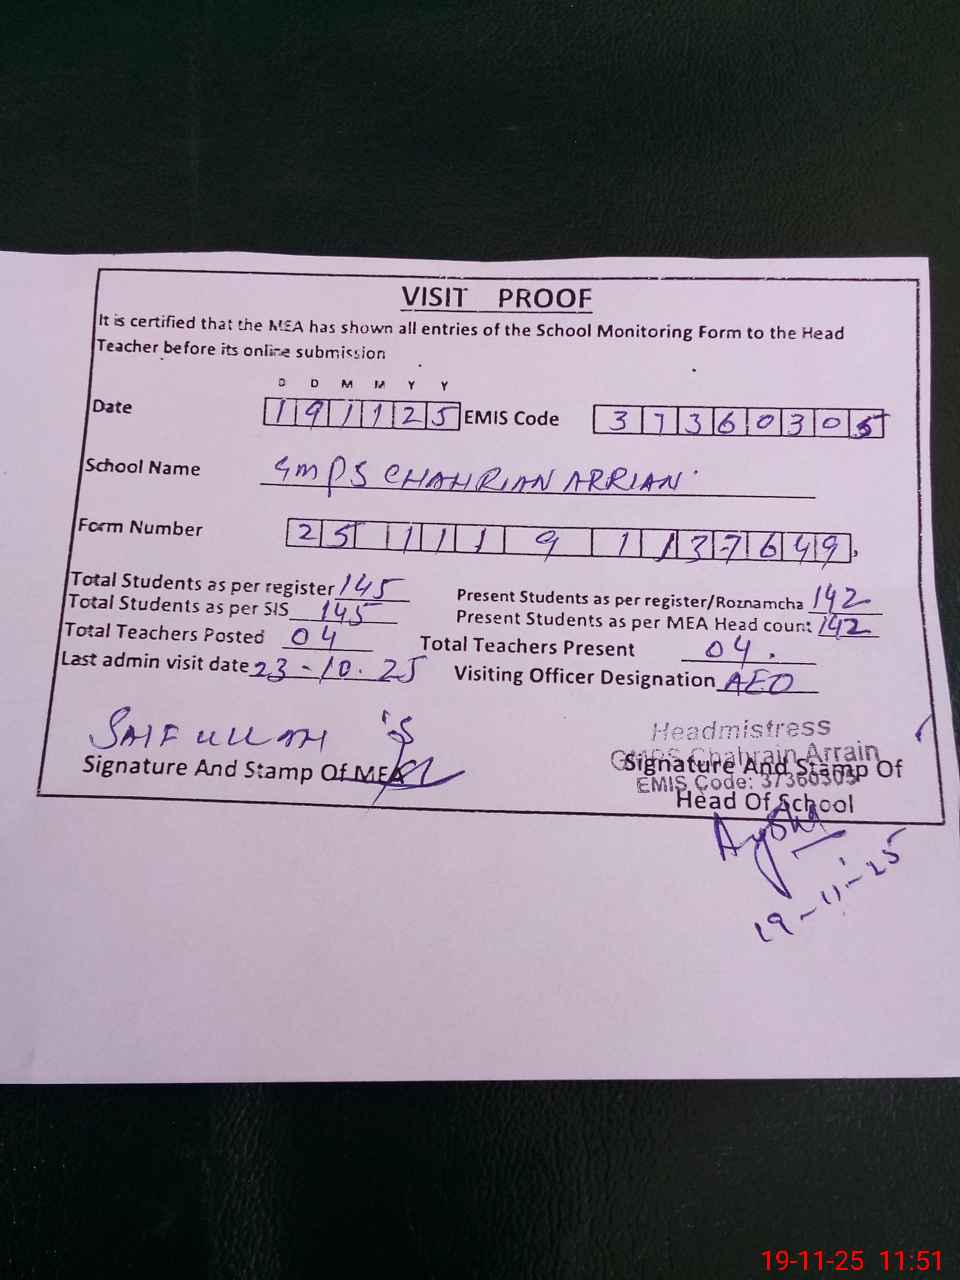 VISIT PROOF
It is certified that the MEA has shown all entries of the School Monitoring Form to the Head
Teacher before its online submission
D D M M Y Y
Date 191125 EMIS Code 37360305
School Name GMPS CHAHRIAN ARRIAN
Form Number 25 111 9 1137649
Total Students as per register 145 Present Students as per register/Roznamcha 142
Total Students as per SIS 145 Present Students as per MEA Head count 142
Total Teachers Posted 04 Total Teachers Present 04.
Last admin visit date 23-10.25 Visiting Officer Designation AEO
SAIFULLAH
Signature And Stamp Of MEA
Headmistress
GMPS Chahrain Arrain
EMIS Code: 37360305
Signature And Stamp Of
Head Of School
Aysha
19-11-25
19-11-25 11:51